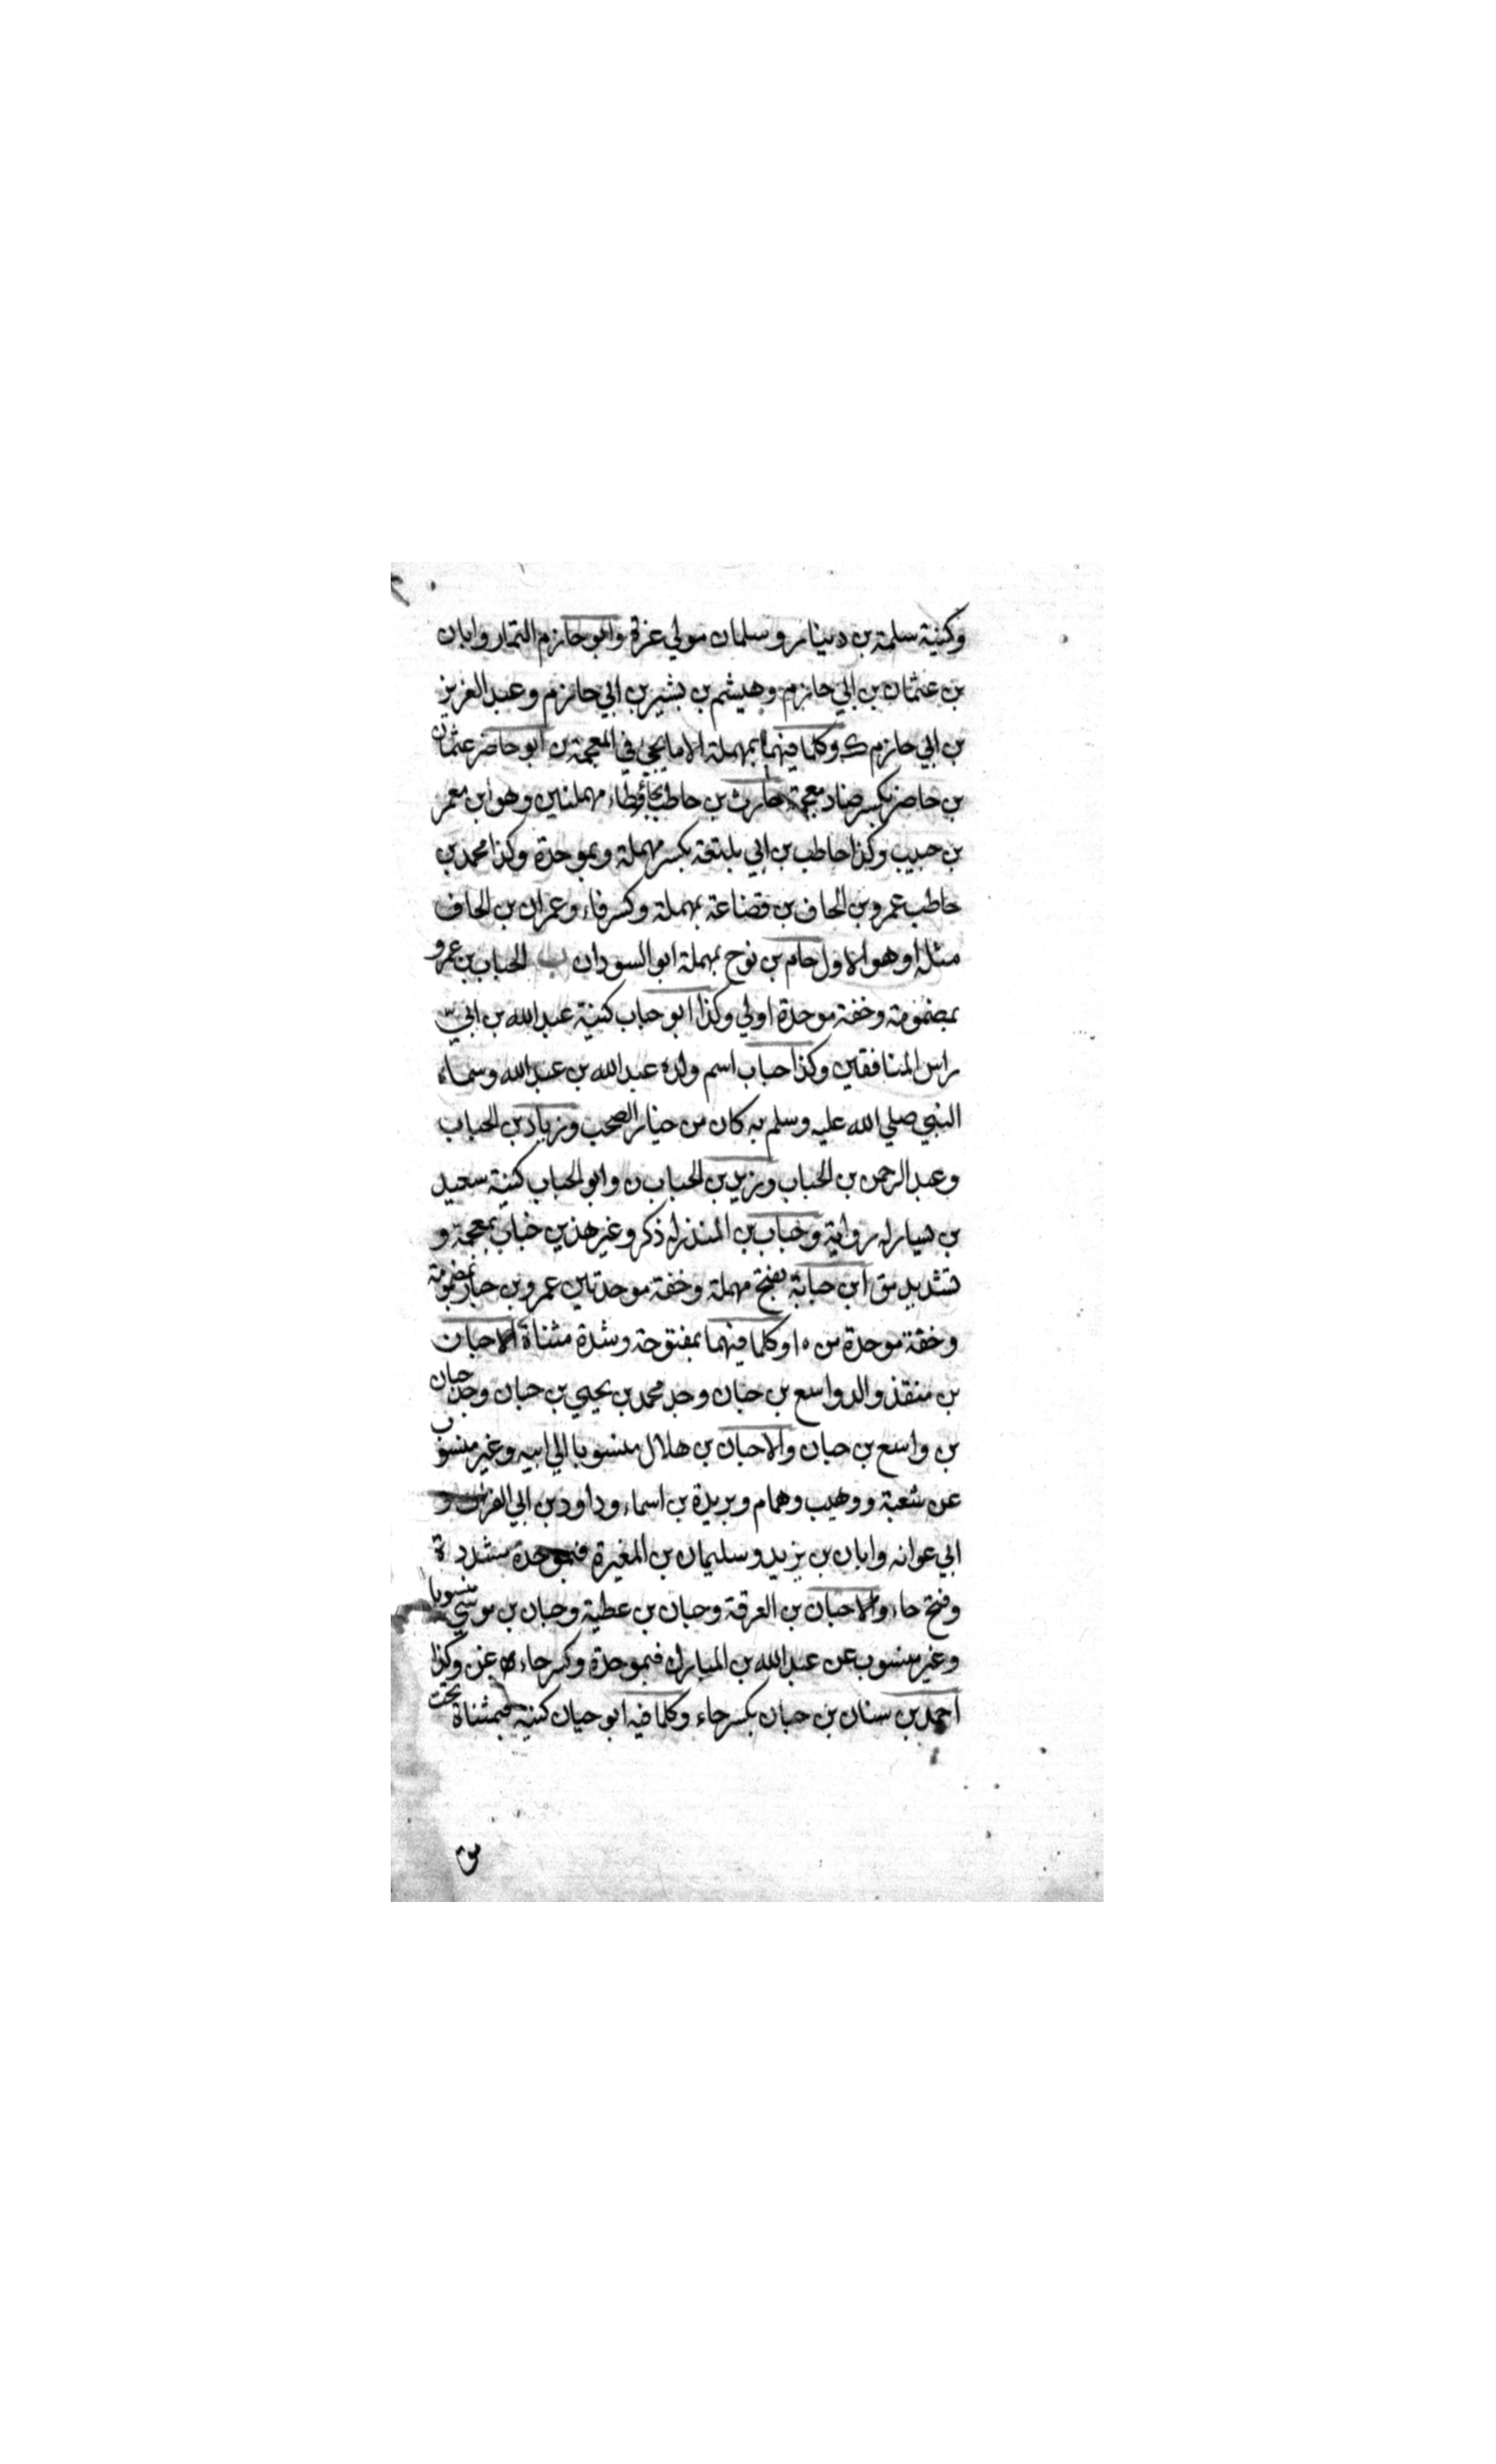 وكنية سلمة بن دينار وسلمان مولي عزة وابو حازم التمار وابان
بن عثمان بن ابي حازم وهيشم بن بشير بن ابي حازم وعبد العزيز
بن ابي حازم ك وكلما فيهما بمهملة الا ما يجئ في المعجمة ن ابو حاضر عثمان
بن حاضر بكسر ضاد معجمة حارث بن حاطب بحاء وطاء مهملتين وهو ابن معمر
بن حبيب وكذا حاطب بن ابي بلتعة بكسر مهملة وبموحدة وكذا محمد بن
حاطب عمرو بن الحاف بن قضاعة بمهملة وكسر فاء وعمران بن الحاف
مثله او هو الاول حام بن نوح بمهملة ابو السودان ب الحباب بن عمرو
بمضمومة وخفة موحدة اولي وكذا ابو حباب كنية عبد الله بن ابي
راس المنافقين وكذا حباب اسم ولده عبد الله بن عبد الله وسماه
النبي صلي الله عليه وسلم به كان من خيار الصحب وزياد بن الحباب
وعبد الرحمن بن الحباب وزيد بن الحباب ن وابو الحباب كنية سعيد
بن يسار له رواية وخباب بن المنذر له ذكر وغير هذين خباب بمعجمة و
تشديد مق ابن حبابة بفتح مهملة وخفة موحدتين عمرو بن حبا بمضمومة
وخفة موحدة من ه ا وكلما فيهما بمفتوحة وشدة مثناة الا حبان
بن منقذ والد واسع بن حبان وجد محمد بن يحيي بن حبان وجد حبان
بن واسع بن حبان والا حبان بن هلال منسوبا الي ابيه وغير منسوب
عن شعبة ووهيب وهمام وبريدة بن اسماء وداود بن ابي الفرات و
ابي عوانه وابان بن يزيد وسليمان بن المغيرة فبموحدة مشددة
وفتح حاء والا حبان بن العرقة وحبان بن عطية وحبان بن موسي منسوبا
وغير منسوب عن عبد الله بن المبارك فبموحدة وكسر حاء غن وكذا
احمد بن سنان بن حبان بكسر حاء وكلما فيه ابو حيان كنية فبمثناة تحت